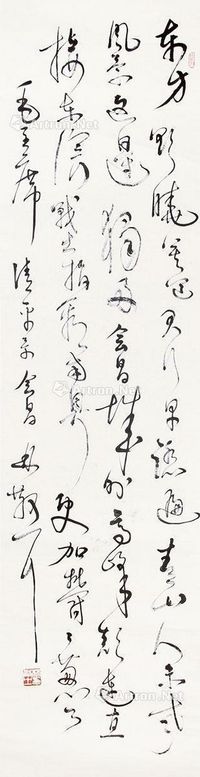 东方欲晓莫道君行早踏遍青山人未老
风景这边独好会昌城外高峰颠连直
接东溟战士指看南粤更加郁々葱々
毛主席清平乐会昌
Artron.Net